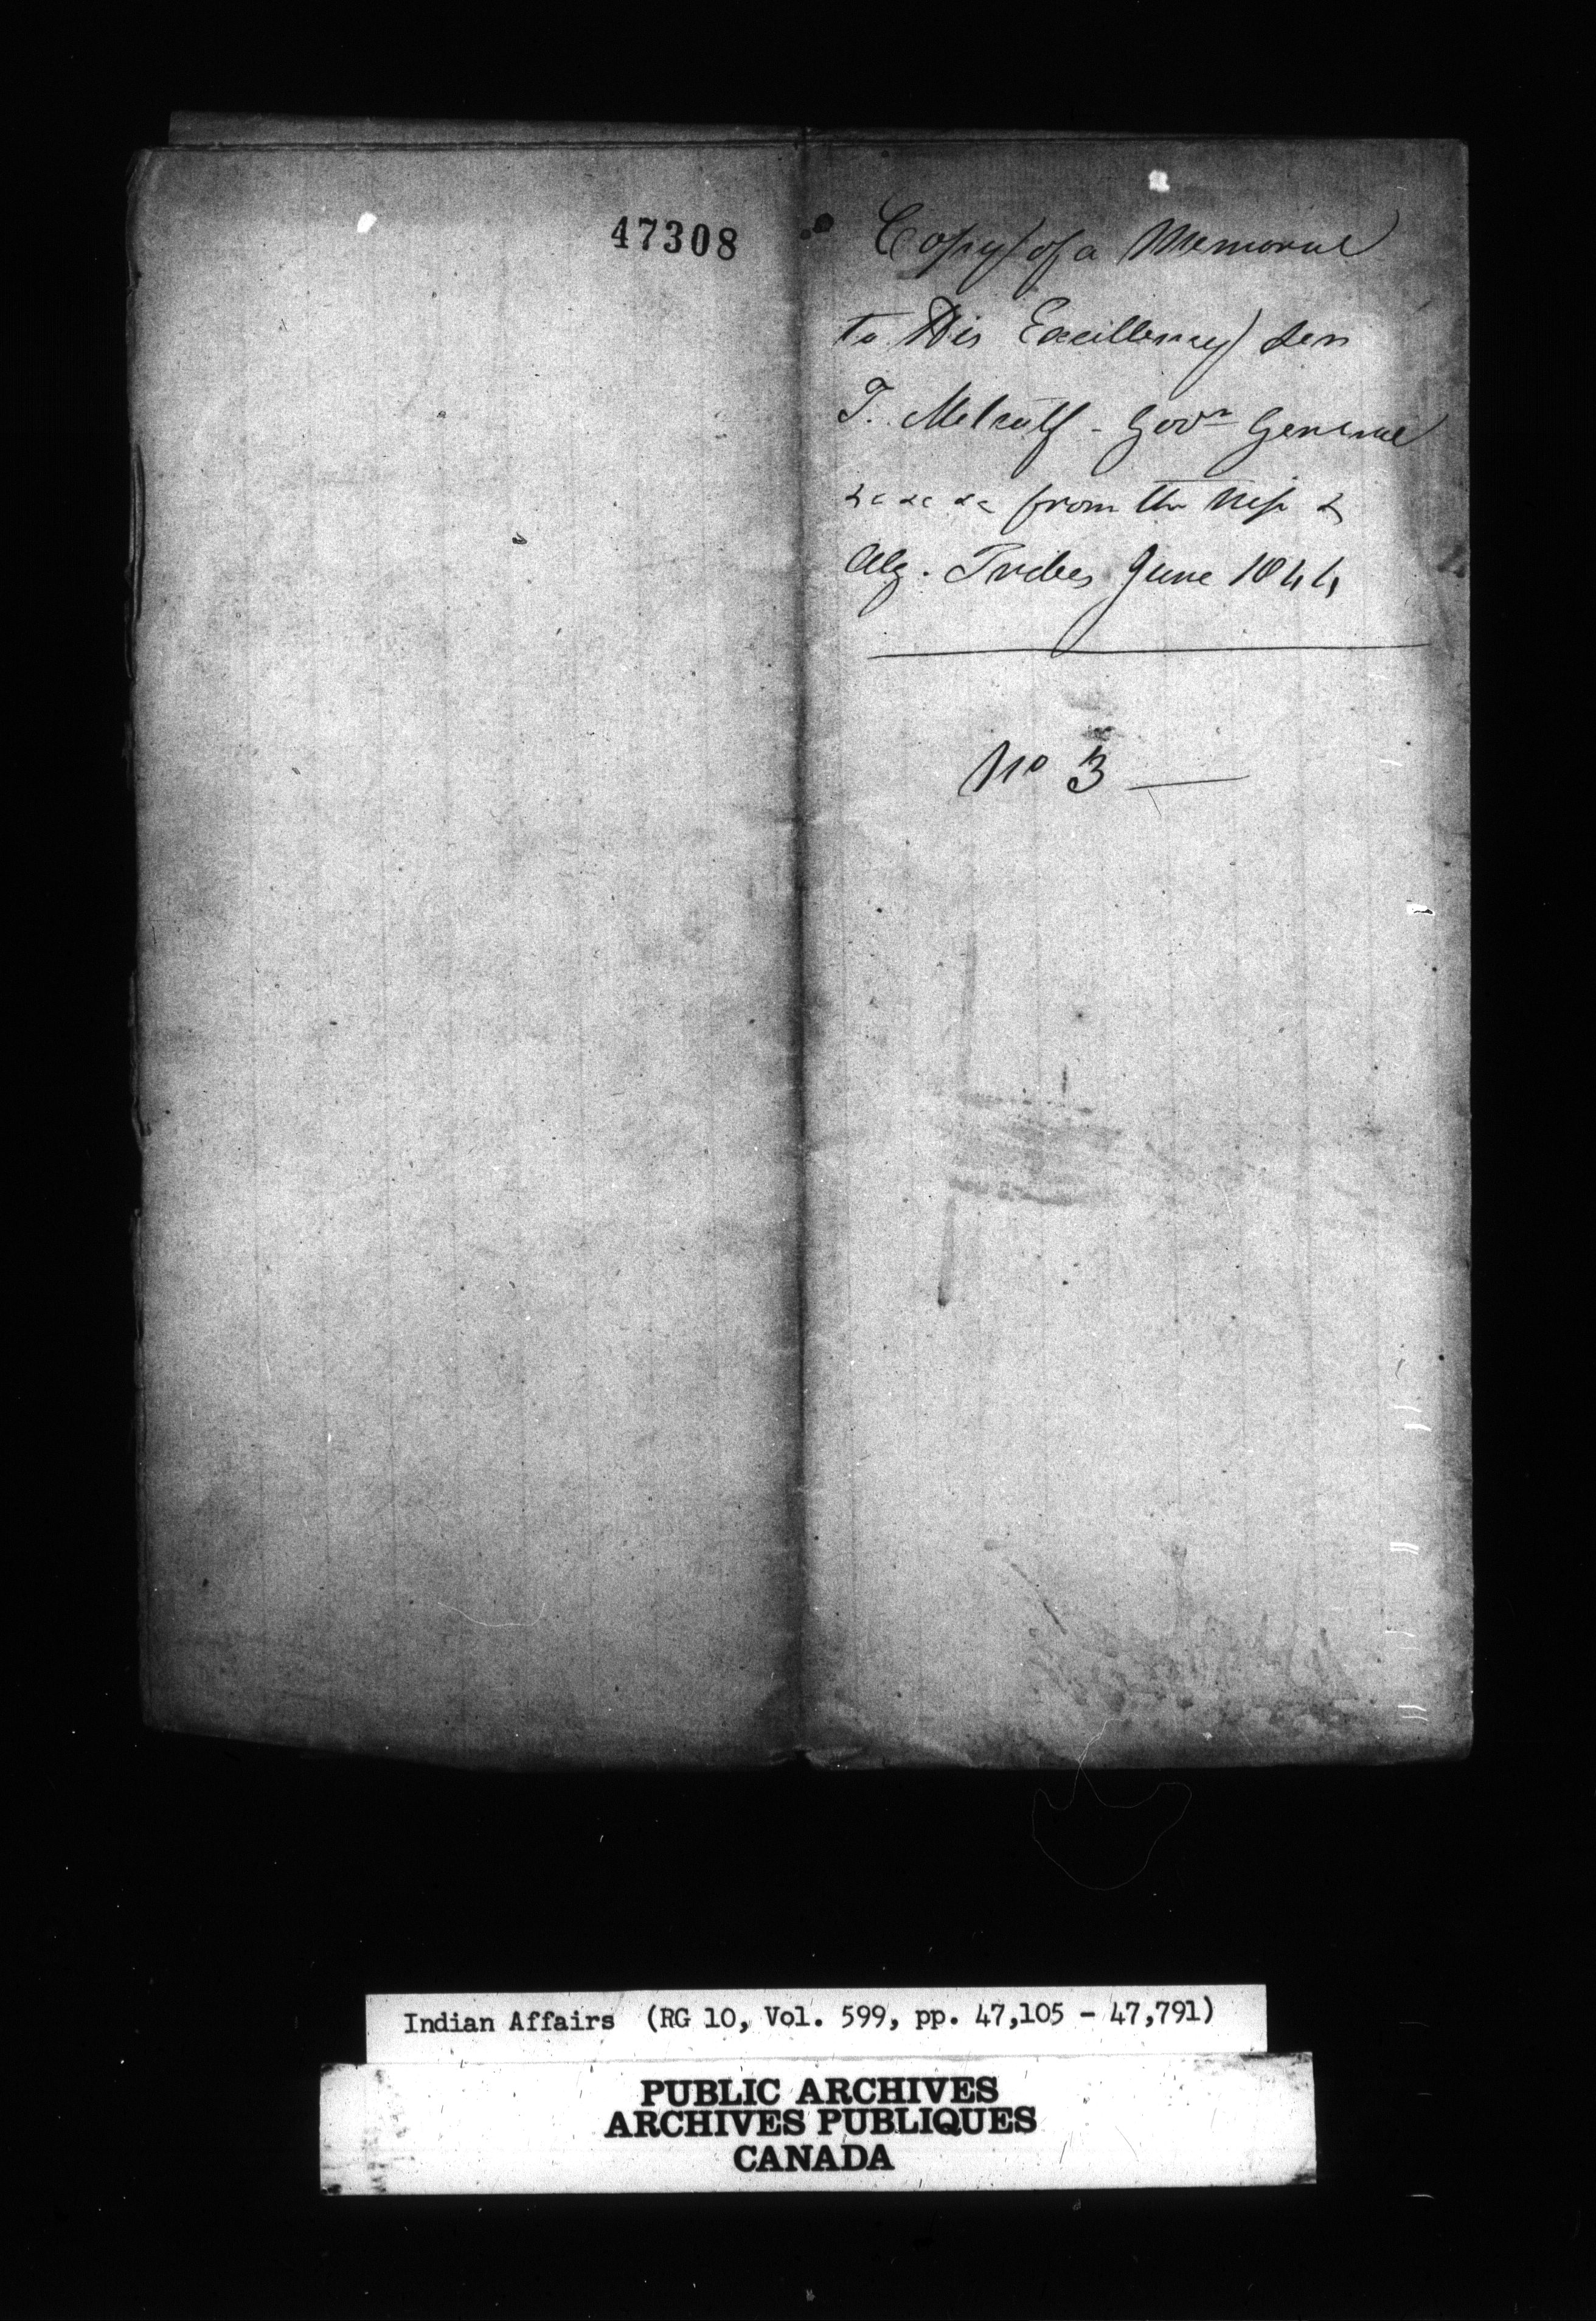 47308
Copy of a Memorial
to His Excellency Sir
T. Metcalf - Govr General
&c &c &c from the Nip &
Alg. Tribes June 1844
No 3
Indian Affairs (RG 10, Vol. 599, pp. 47,105 - 47,791)
PUBLIC ARCHIVES
ARCHIVES PUBLIQUES
CANADA